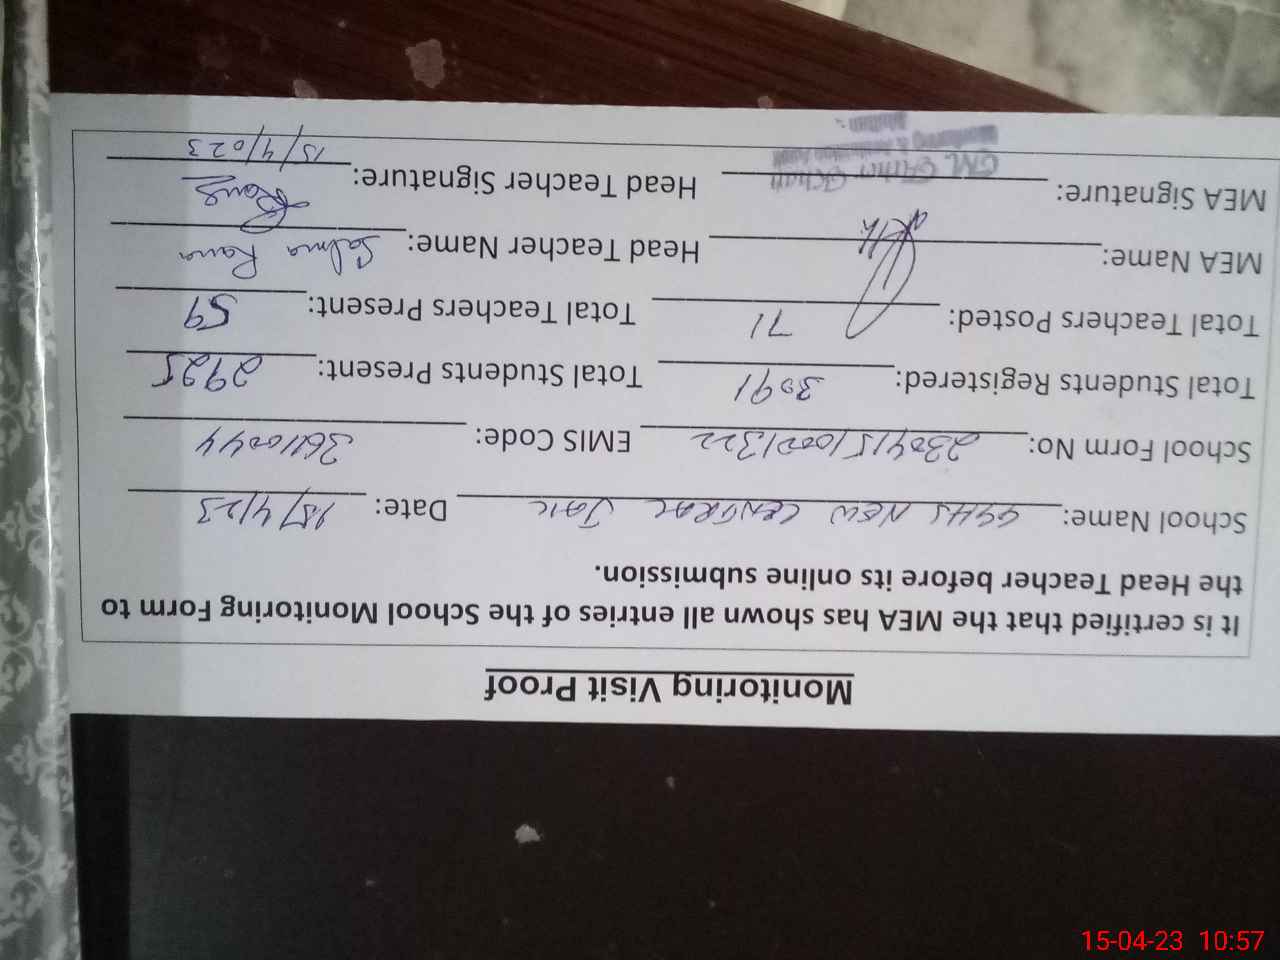 Monitoring Visit Proof
It is certified that the MEA has shown all entries of the School Monitoring Form to
the Head Teacher before its online submission.
School Name: GGHS NEW CENTRAL JAIL Date: 15/4/23
School Form No: 230415/0001322 EMIS Code: 36110044
Total Students Registered: 3091 Total Students Present: 2925
Total Teachers Posted: 71 Total Teachers Present: 59
MEA Name: Head Teacher Name: Salma Rana
MEA Signature: Head Teacher Signature: Rana
15/4/023
Monitoring &
15-04-23 10:57